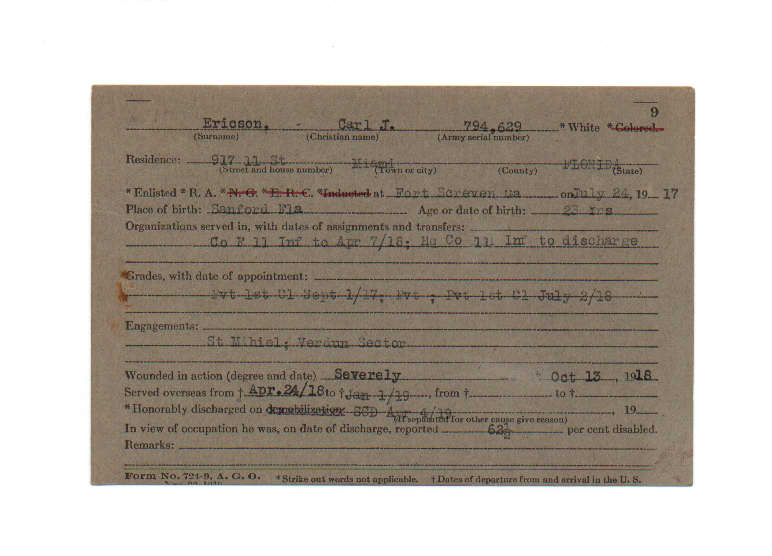 9
Ericson, - Carl J. 794,629 * White * Colored.
(Surname) (Christian name) (Army serial number)
Residence: 917 11 St Miami FLORIDA
(Street and house number) (Town or city) (County) (State)
* Enlisted * R. A. * N. G. * E. R. C. * Inducted at Fort Screven Ga on July 24, 19 17
Place of birth: Sanford Fla Age or date of birth: 23 Yrs
Organizations served in, with dates of assignments and transfers:
Co F 11 Inf to Apr 7/18; Hq Co 11 Inf to discharge
Grades, with date of appointment:
Pvt 1st Cl Sept 1/17; Pvt ; Pvt 1st Cl July 2/18
Engagements:
St Mihiel; Verdun Sector
Wounded in action (degree and date) Severely Oct 13, 1918
Served overseas from † Apr.24/18 to † Jan 1/19, from † to †
* Honorably discharged on demobilization SCD Apr 4/19, 19
(If separated for other cause give reason)
In view of occupation he was, on date of discharge, reported 62½ per cent disabled.
Remarks:
Form No. 724-9, A. G. O. * Strike out words not applicable. † Dates of departure from and arrival in the U. S.